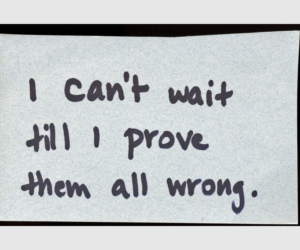 I can't wait
till I prove
them all wrong.